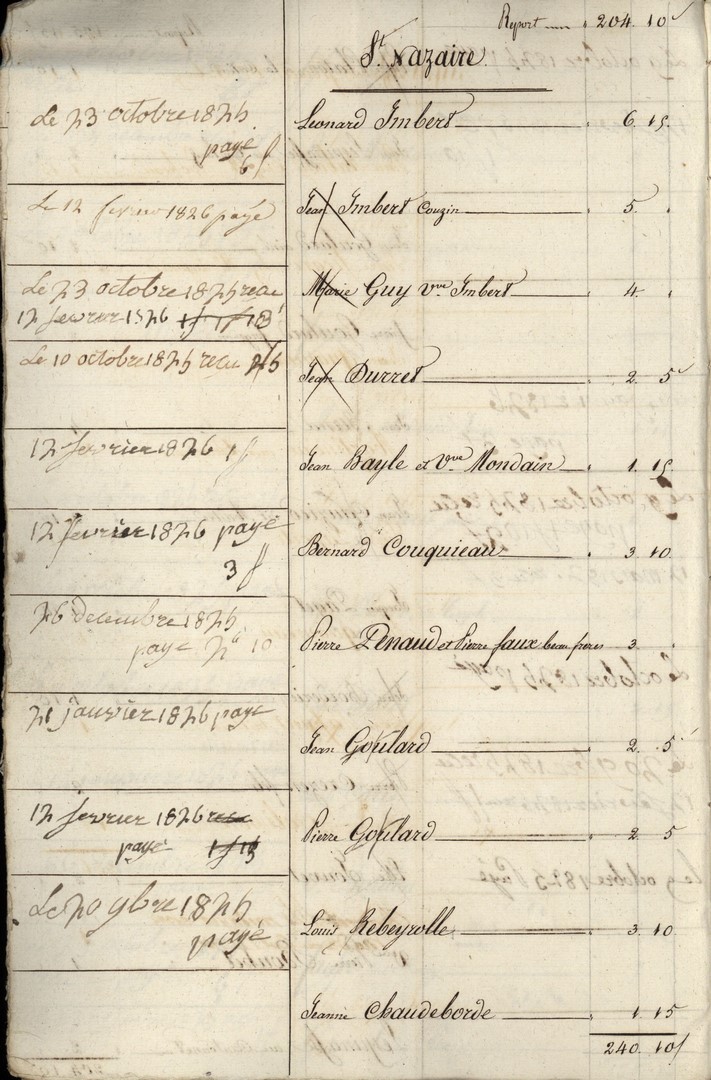 Report 204. 10
St. Nazaire
Le 23 octobre 1825
payé
6 f
Léonard Imbert 6. 15.
Le 12 fevrier 1826 payé
Jean Imbert Couzin 5.
Le 23 octobre 1825 recu
12 fevrier 1826
Marie Guy Vve Imbert 4.
Le 10 octobre 1825 recu
Jean Durret 2. 5
12 fevrier 1826 1 f
Jean Bayle et Vve Mondain 1. 15.
12 fevrier 1826 payé
3 f
Bernard Couquieau 3. 10
26 decembre 1825
paye 2 10
Pierre Penaud et Pierre faux beau freres 3.
21 janvier 1826 paye
Jean Goulard 2. 5
12 fevrier 1826 recu
paye
Pierre Goulard 2. 5
Le 20 9bre 1825
payé
Louis Rebeyrolle 3. 10
Jeanne Chaudeborde 1. 15
240. 10 f